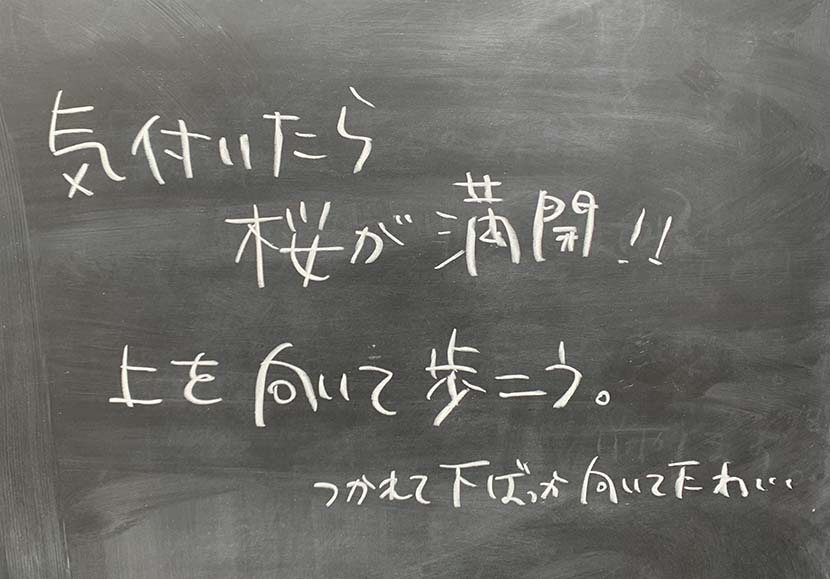 気付いたら
桜が満開!!
上を向いて歩こう。
つかれて下ばっか向いてたわ…